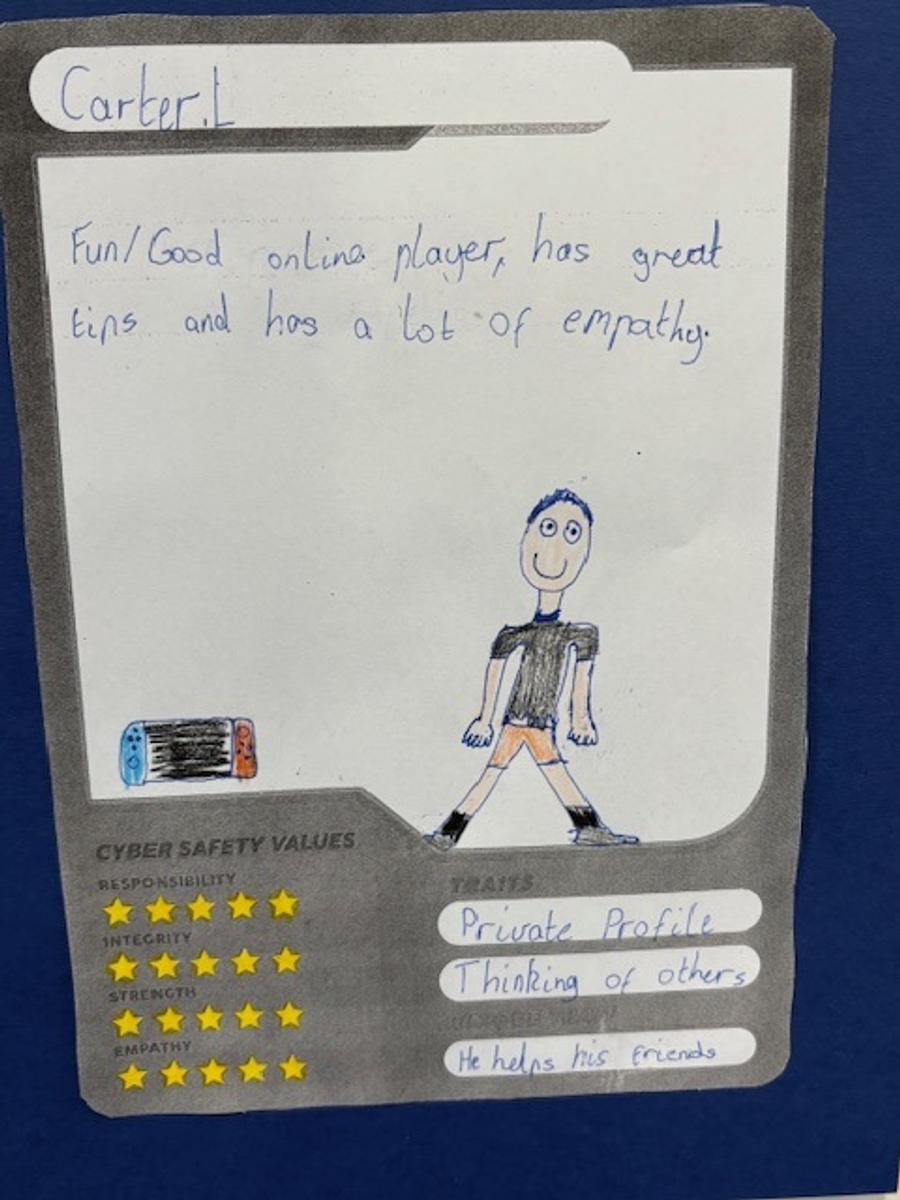 Carter.L
Fun/Good online player, has great
tips and has a lot of empathy.
CYBER SAFETY VALUES
RESPONSIBILITY
INTEGRITY
STRENGTH
EMPATHY
TRAITS
Private Profile
Thinking of others
He helps his friends